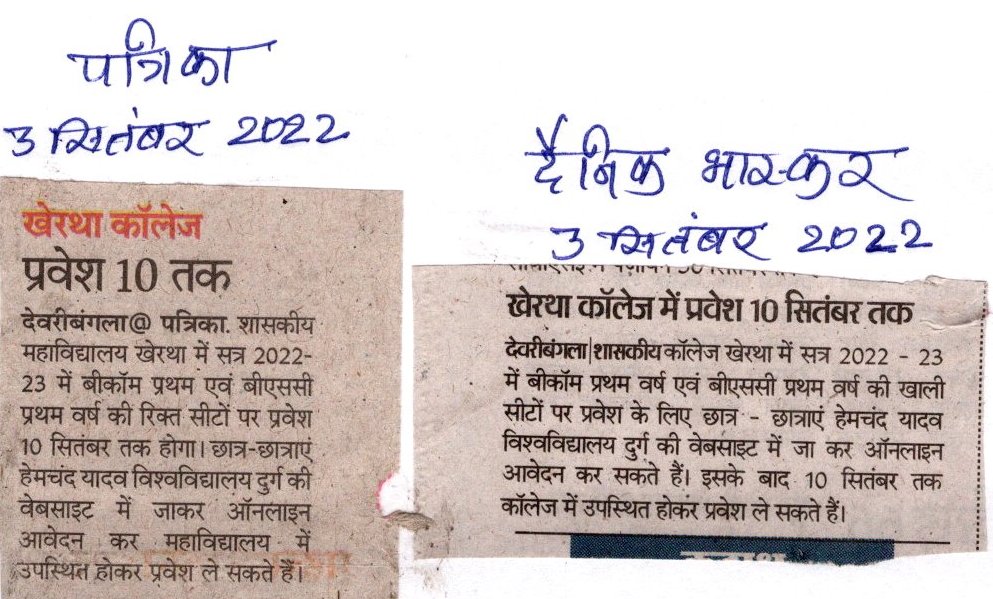 पत्रिका
3 सितंबर 2022
खेरथा कॉलेज
प्रवेश 10 तक
देवरीबंगला@ पत्रिका. शासकीय
महाविद्यालय खेरथा में सत्र 2022-
23 में बीकॉम प्रथम एवं बीएससी
प्रथम वर्ष की रिक्त सीटों पर प्रवेश
10 सितंबर तक होगा। छात्र-छात्राएं
हेमचंद यादव विश्वविद्यालय दुर्ग की
वेबसाइट में जाकर ऑनलाइन
आवेदन कर महाविद्यालय में
उपस्थित होकर प्रवेश ले सकते हैं।
दैनिक भास्कर
3 सितंबर 2022
खेरथा कॉलेज में प्रवेश 10 सितंबर तक
देवरीबंगला|शासकीय कॉलेज खेरथा में सत्र 2022 - 23
में बीकॉम प्रथम वर्ष एवं बीएससी प्रथम वर्ष की खाली
सीटों पर प्रवेश के लिए छात्र - छात्राएं हेमचंद यादव
विश्वविद्यालय दुर्ग की वेबसाइट में जा कर ऑनलाइन
आवेदन कर सकते हैं। इसके बाद 10 सितंबर तक
कॉलेज में उपस्थित होकर प्रवेश ले सकते हैं।